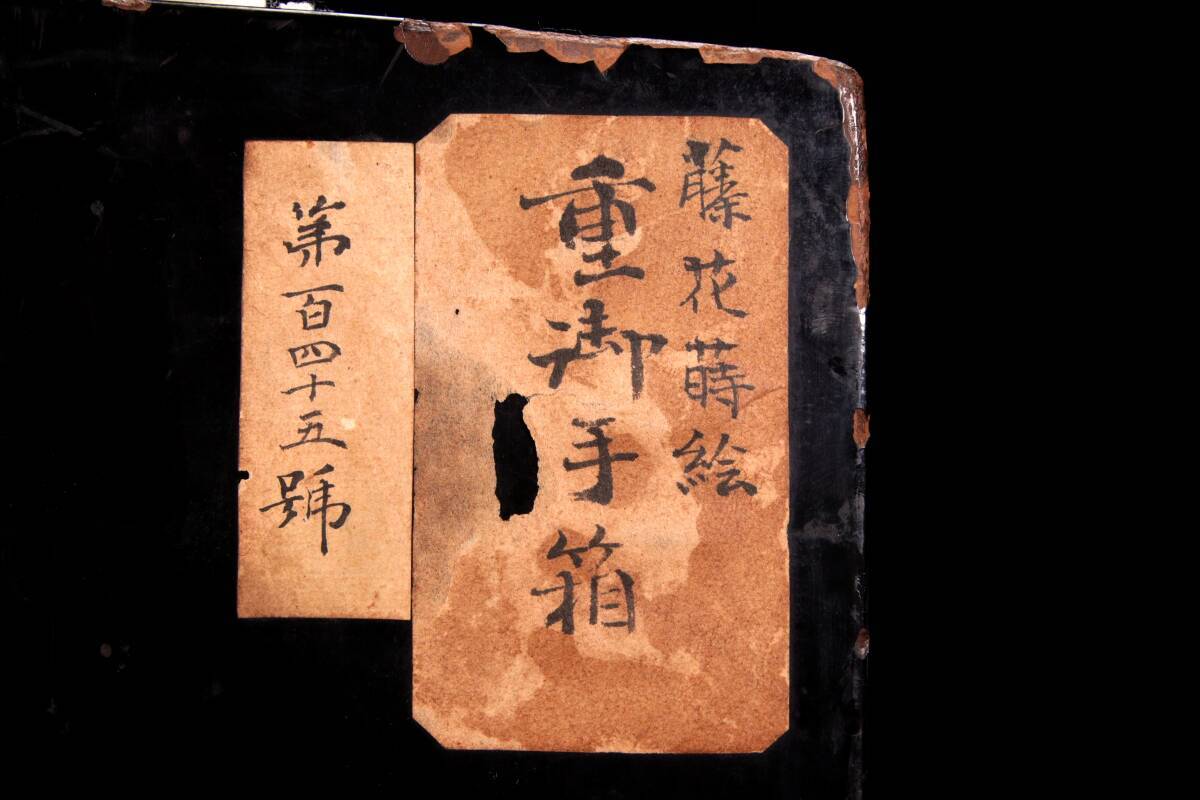 藤花蒔絵
重御手箱
第百四十五號